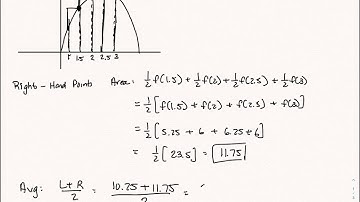 1 1.5 2 2.5 3
Right-Hand Points Area: 1/2 f(1.5) + 1/2 f(2) + 1/2 f(2.5) + 1/2 f(3)
= 1/2 [f(1.5) + f(2) + f(2.5) + f(3)]
= 1/2 [5.25 + 6 + 6.25 + 6]
= 1/2 [23.5] = 11.75
Avg: L+R/2 = 10.25 + 11.75/2 =